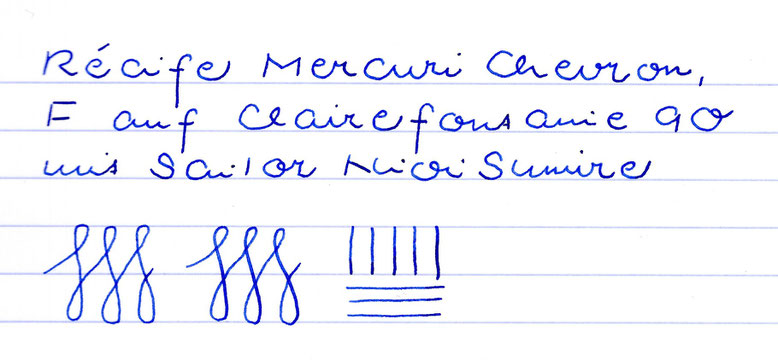 Récife Mercuri Chevron,
F auf Clairefontaine 90
mit Sailor Nioi Sumire